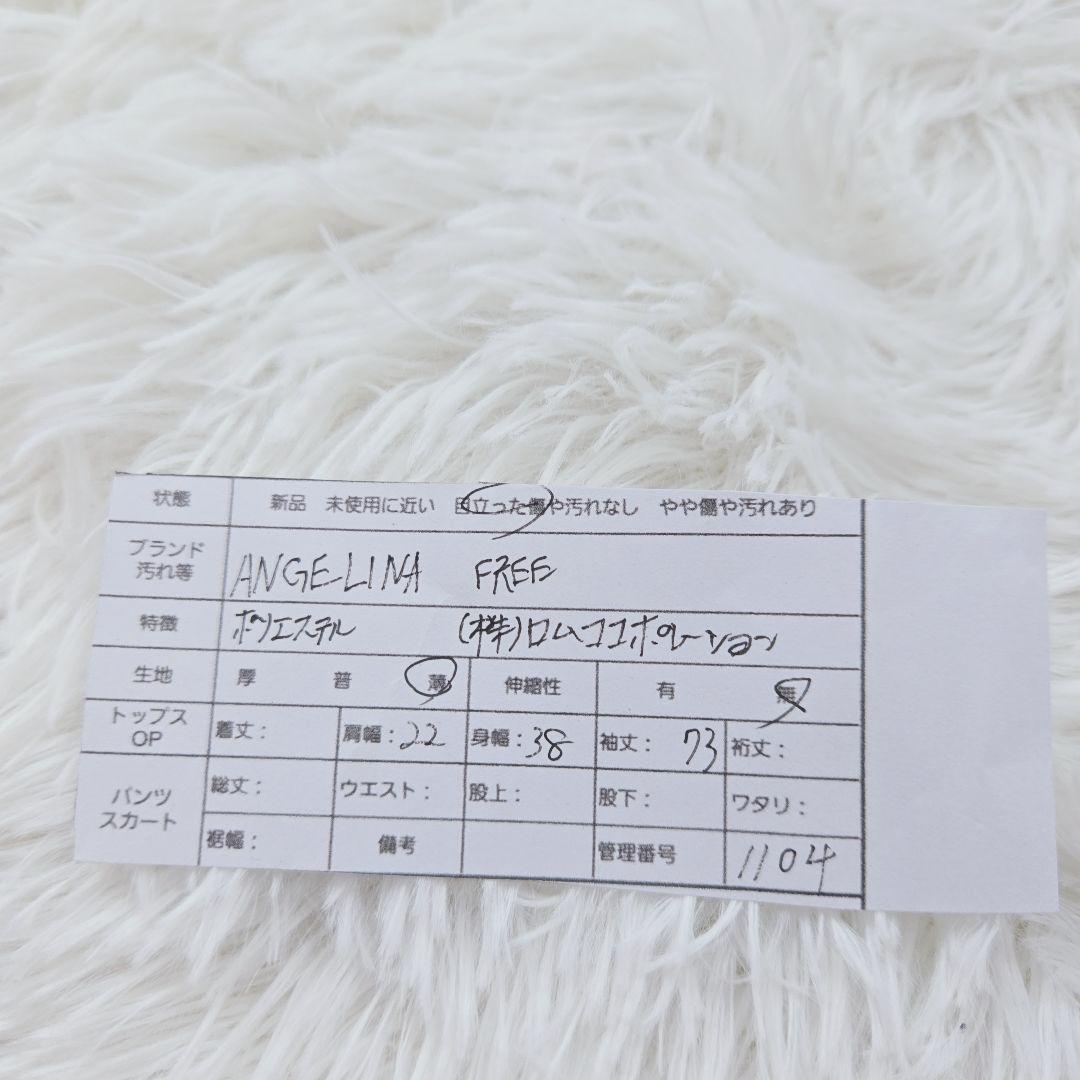 状態 新品 未使用に近い 目立った傷や汚れなし やや傷や汚れあり
ブランド 汚れ等 ANGELINA FREE
特徴 ポリエステル (株)ロムココーポレーション
生地 厚 普 薄 伸縮性 有 無
トップス OP 着丈: 肩幅:22 身幅:38 袖丈: 73 裄丈:
パンツ スカート 総丈: ウエスト: 股上: 股下: ワタリ:
裾幅: 備考 管理番号 1104